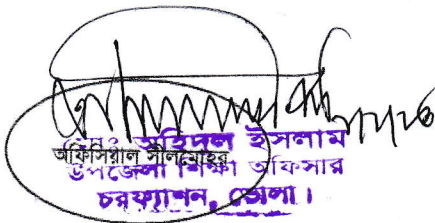 মোঃ অহিদুল ইসলাম
অফিসিয়াল সীলমোহর
উপজেলা শিক্ষা অফিসার
চরফ্যাশন, ভোলা।